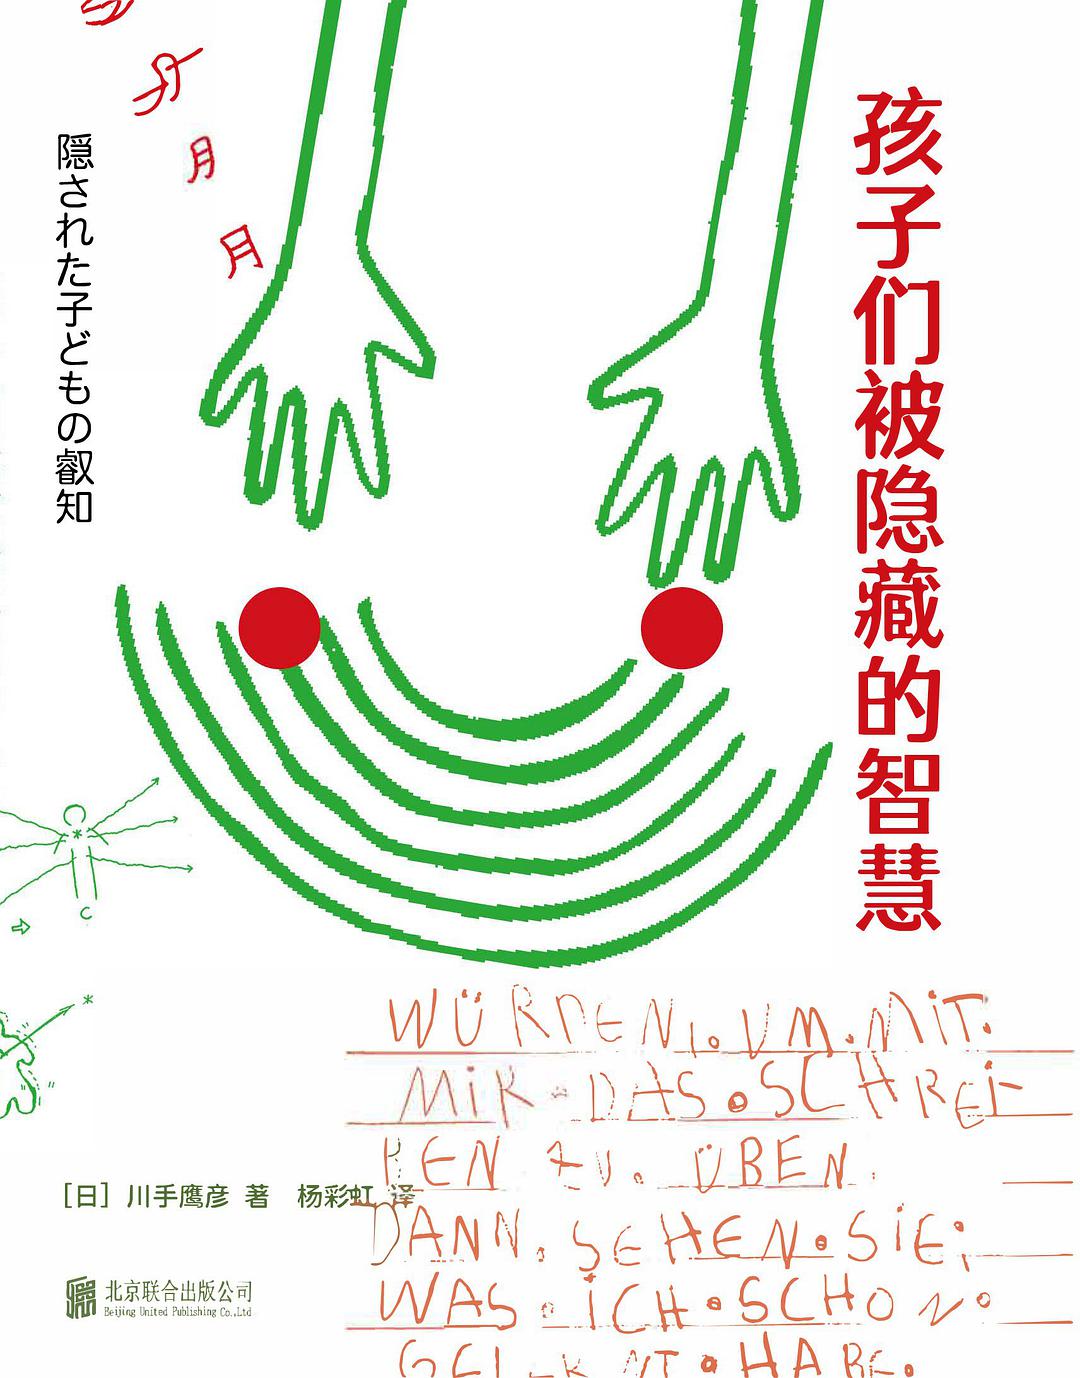 孩子们被隐藏的智慧
隠された子どもの叡知
月
月
WÜRDEN. UM. MiT.
MiR DAS. SCHREi
BEN ZU. ÜBEN.
DANN. SEHEN. SiE;
WAS. iCH. SCHON.
HABE.
[日] 川手鹰彦 著 杨彩虹 译
北京联合出版公司
Beijing United Publishing Co.,Ltd